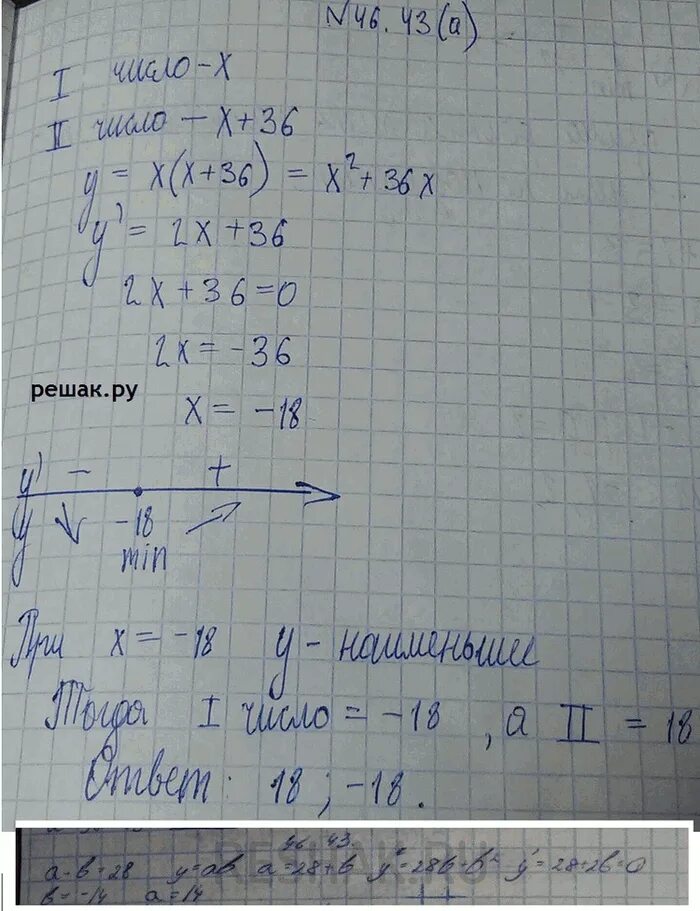 №46.43(а)
I число - x
II число - x+36
y = x(x+36) = x²+36x
y' = 2x+36
2x+36=0
2x = -36
решак.ру
x = -18
y' - +
y -18
min
При x = -18 y - наименьшее
Тогда I число = -18, а II = 18
Ответ: 18; -18.
46 43
RESHAK.RU
a-b=28 y=ab a=28+b y=28b+b² y'=28+2b=0
b=-14 a=14